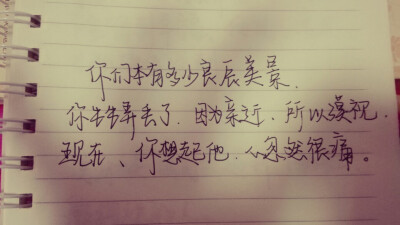 你们本有多少良辰美景.
你生生弄丢了.因为亲近.所以漠视.
现在、你想起他.心忽然很痛。